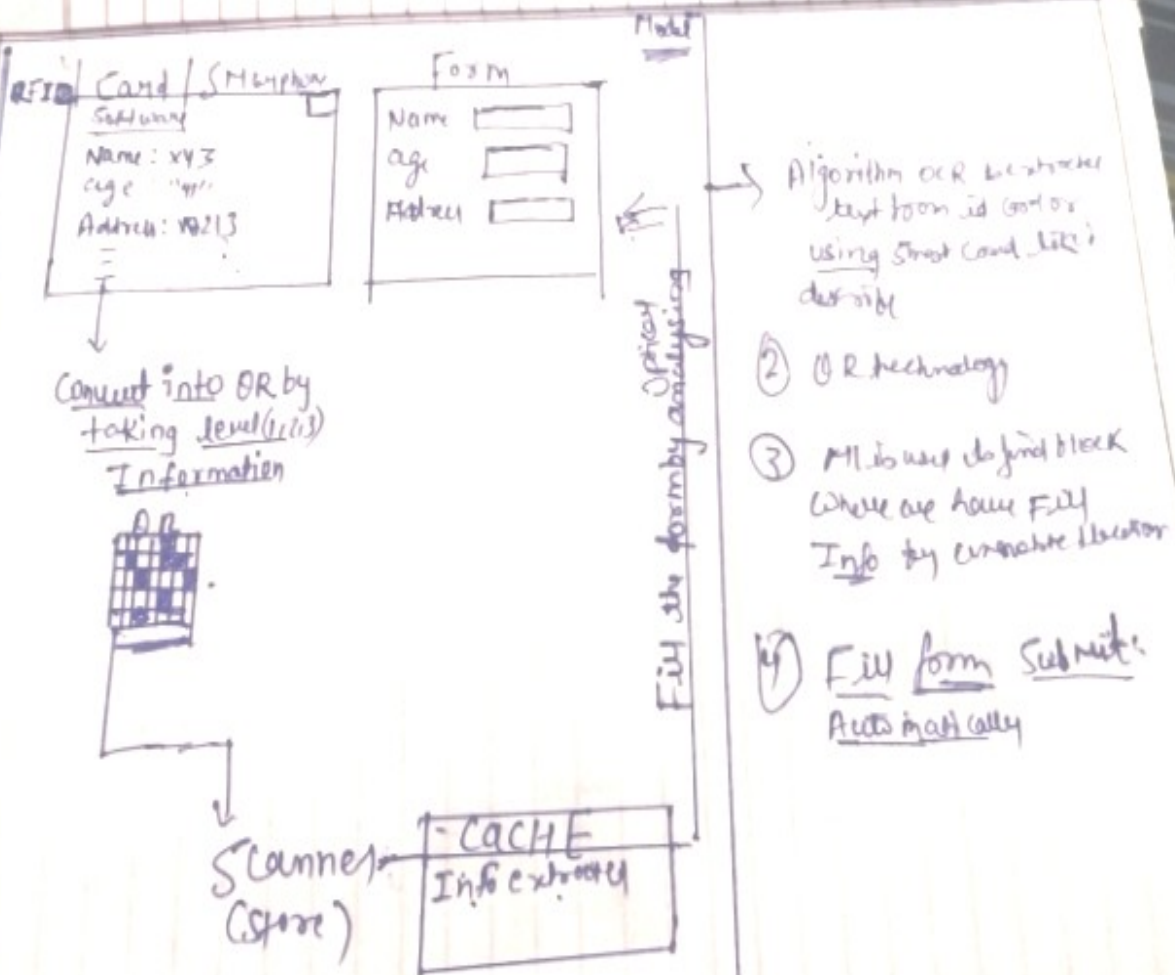 Model
RFID Card / Smartphone
Software
Name: xyz
age "11"
Address: 213
Form
Name
age
Address
Convert into QR by
taking level(1,2,3)
Information
QR
Scanner
(Store)
CACHE
Info extracted
Fill the form by analysing
Optical
Algorithm OCR
text from id card or
using Smart Card like
② QR technology
③ Ml is used to find block
Where we have Fill
Info by
④ Fill form Submit
Automatically